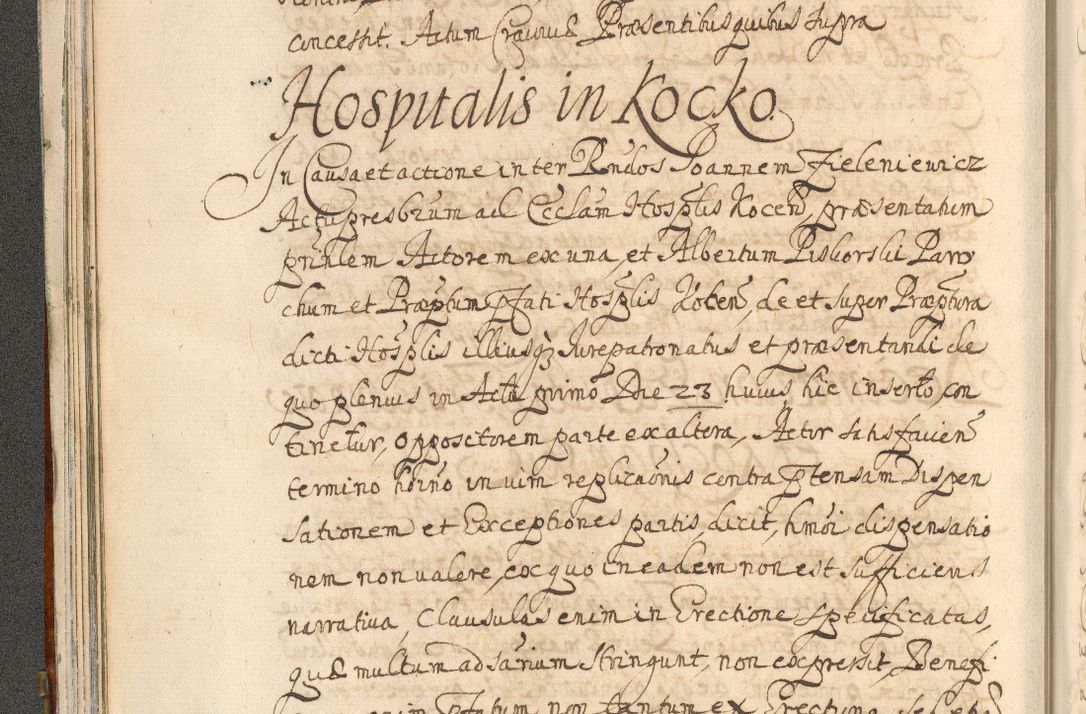 concessit. Actum Cracoviæ Præsentibus quibus supra
Hospitalis in Kocko.
In Causa et actione inter Rndos Joannem Zieleniewicz
Actu presbrum ad Ecclam Hosplis Kocen, præsentatum
prinlem Actorem ex una, et Albertum Piskorski Paro
chum et Præptum Pfati Hosplis Kocen, de et super Præptura
dicti Hosplis illiusq Jurepatronatus et præsentandi de
quo plenius in Actu primo Die 23 huius hic inserto, con
tinetur, oppositorem parte ex altera, Actor satisfacien
termino horno in vim replicaonis contra Ptensam Dispen
sationem et Exceptiones partis, dicit, hmoi dispensatio
nem non valere, ex quo in eadem non est sufficiens
narrativa, Clausulas enim in Erectione specificatas,
quæ multum adsarium stringunt, non expressit, Benefi
enim Ptatum, non tantum ex Erectione